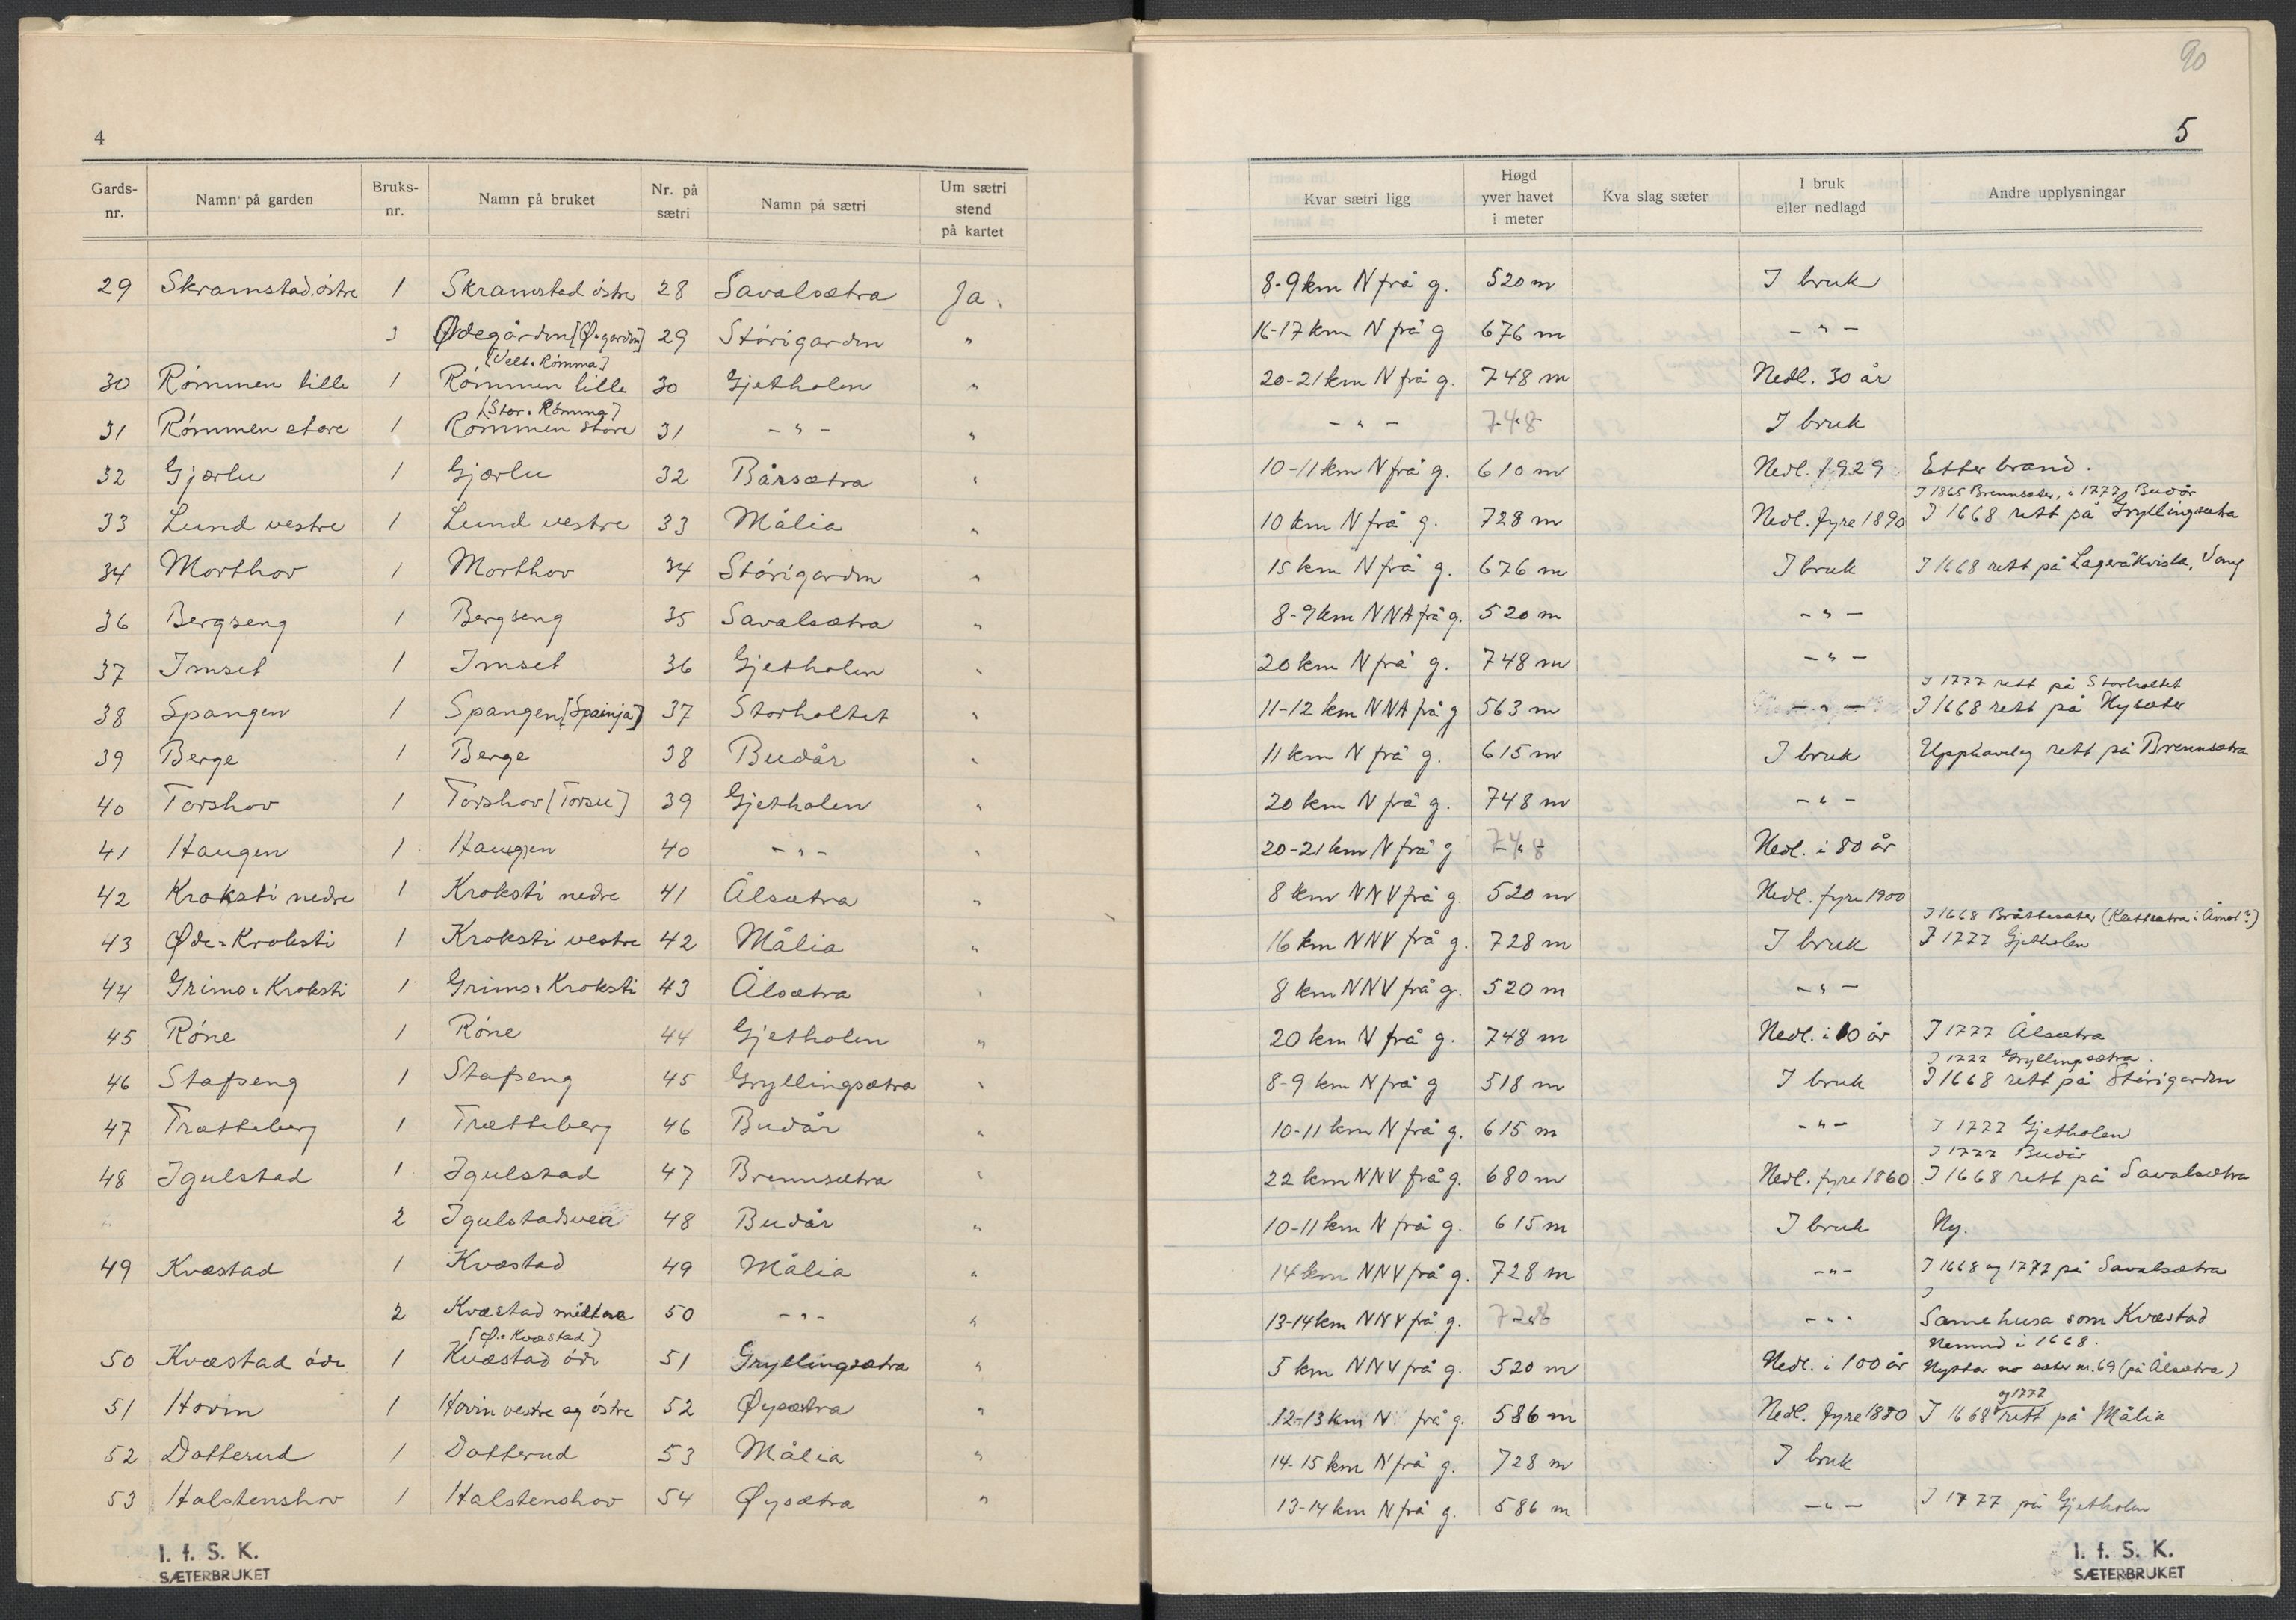 4
Gards-nr. | Namn på garden | Bruks-nr. | Namn på bruket | Nr. på sætri | Namn på sætri | Um sætri stend på kartet
29 | Skramstad, østre | 1 | Skramstad østre | 28 | Savalsætra | Ja.
3 | Ødegården [Ø-garðn] | 29 | Storigarden | "
30 | Rømmen lille | 1 | [Vetl-Rømma] Rømmen lille | 30 | Gjetholen | "
31 | Rømmen store | 1 | [Stor-Rømma] Rømmen store | 31 | - " - | "
32 | Gjørlu | 1 | Gjørlu | 32 | Bårsætra | "
33 | Lund vestre | 1 | Lund vestre | 33 | Målia | "
34 | Morthov | 1 | Morthov | 34 | Storigarden | "
36 | Bergseng | 1 | Bergseng | 35 | Savalsætra | "
37 | Imset | 1 | Imset | 36 | Gjetholen | "
38 | Spangen | 1 | Spangen [Spainja] | 37 | Storholtet | "
39 | Berge | 1 | Berge | 38 | Budår | "
40 | Torshov | 1 | Torshov [Torsu] | 39 | Gjetholen | "
41 | Haugen | 1 | Haugen | 40 | - " - | "
42 | Kroksti nedre | 1 | Kroksti nedre | 41 | Ålsætra | "
43 | Øde-Kroksti | 1 | Kroksti vestre | 42 | Målia | "
44 | Grims-Kroksti | 1 | Grims-Kroksti | 43 | Ålsætra | "
45 | Røne | 1 | Røne | 44 | Gjetholen | "
46 | Stafseng | 1 | Stafseng | 45 | Gryllingsætra | "
47 | Trætteberg | 1 | Trætteberg | 46 | Budår | "
48 | Igulstad | 1 | Igulstad | 47 | Brennsætra | "
2 | Igulstadsvea | 48 | Budår | "
49 | Kvæstad | 1 | Kvæstad | 49 | Målia | "
2 | Kvæstad | 50 | - " - | "
50 | Kvæstad øde | 1 | [Ø-Kvæstad] Kvæstad øde | 51 | Gryllingsætra | "
51 | Hovin | 1 | Hovin vestre og østre | 52 | Øysætra | "
52 | Dotterud | 1 | Dotterud | 53 | Målia | "
53 | Halstenshov | 1 | Halstenshov | 54 | Øysætra | "
I. f. S. K.
SÆTERBRUKET
90
5
Kvar sætri ligg | Høgd yver havet i meter | Kva slag sæter | I bruk eller nedlagd | Andre upplysningar
8-9 km N frå g. | 520 m | I bruk
16-17 km N frå g | 676 m | - " -
20-21 km N frå g. | 748 m | Nedl. 30 år
- " - | 748 | I bruk
10-11 km N frå g. | 610 m | Nedl. 1929 | Etter brand.
I 1865 Brennsæter, i 1777 Budår
10 km N frå g. | 728 m | Nedl. fyre 1890 | I 1668 rett på Gryllingsætra
15 km N frå g. | 676 m | I bruk | I 1668 rett på Lageråkvisla, Vang
8-9 km NNA frå g. | 520 m | - " -
20 km N frå g. | 748 m | - " -
I 1777 rett på Storholtet
11-12 km NNA frå g | 563 m | - " - | I 1668 rett på Nysæter
11 km N frå g. | 615 m | I bruk | Upphavleg rett på Brennsætra
20 km N frå g. | 748 m | - " -
20-21 km N frå g | 748 | Nedl. i 80 år
8 km NNV frå g. | 520 m | Nedl. fyre 1900
I 1668 Bråttesæter (Kettsætra i Åmot?)
16 km NNV frå g. | 728 m | I bruk | I 1777 Gjetholen
8 km NNV frå g. | 520 m | - " -
20 km N frå g. | 748 m | Nedl. i 10 år | I 1777 Ålsætra
I 1777 Gryllingsætra.
8-9 km N frå g | 518 m | I bruk | I 1668 rett på Storigarden
10-11 km N frå g. | 615 m | - " - | I 1777 Gjetholen
I 1777 Budår
22 km NNV frå g. | 680 m | Nedl. fyre 1860 | I 1668 rett på Savalsætra
10-11 km N frå g. | 615 m | I bruk | Ny.
14 km NNV frå g. | 728 m | - " - | I 1668 og 1777 på Savalsætra
13-14 km NNV frå g. | 728 | - " - | Same husa som Kvæstad
Nemnd i 1668.
5 km NNV frå g. | 520 m | Nedl. i 100 år | Nyttar no sæter nr. 69 (på Ålsætra)
12-13 km N frå g. | 586 m | Nedl. fyre 1880 | I 1668 og 1777 rett på Målia
14-15 km N frå g. | 728 m | I bruk
13-14 km N frå g. | 586 m | - " - | I 1777 på Gjetholen
I. f. S. K.
SÆTERBRUKET